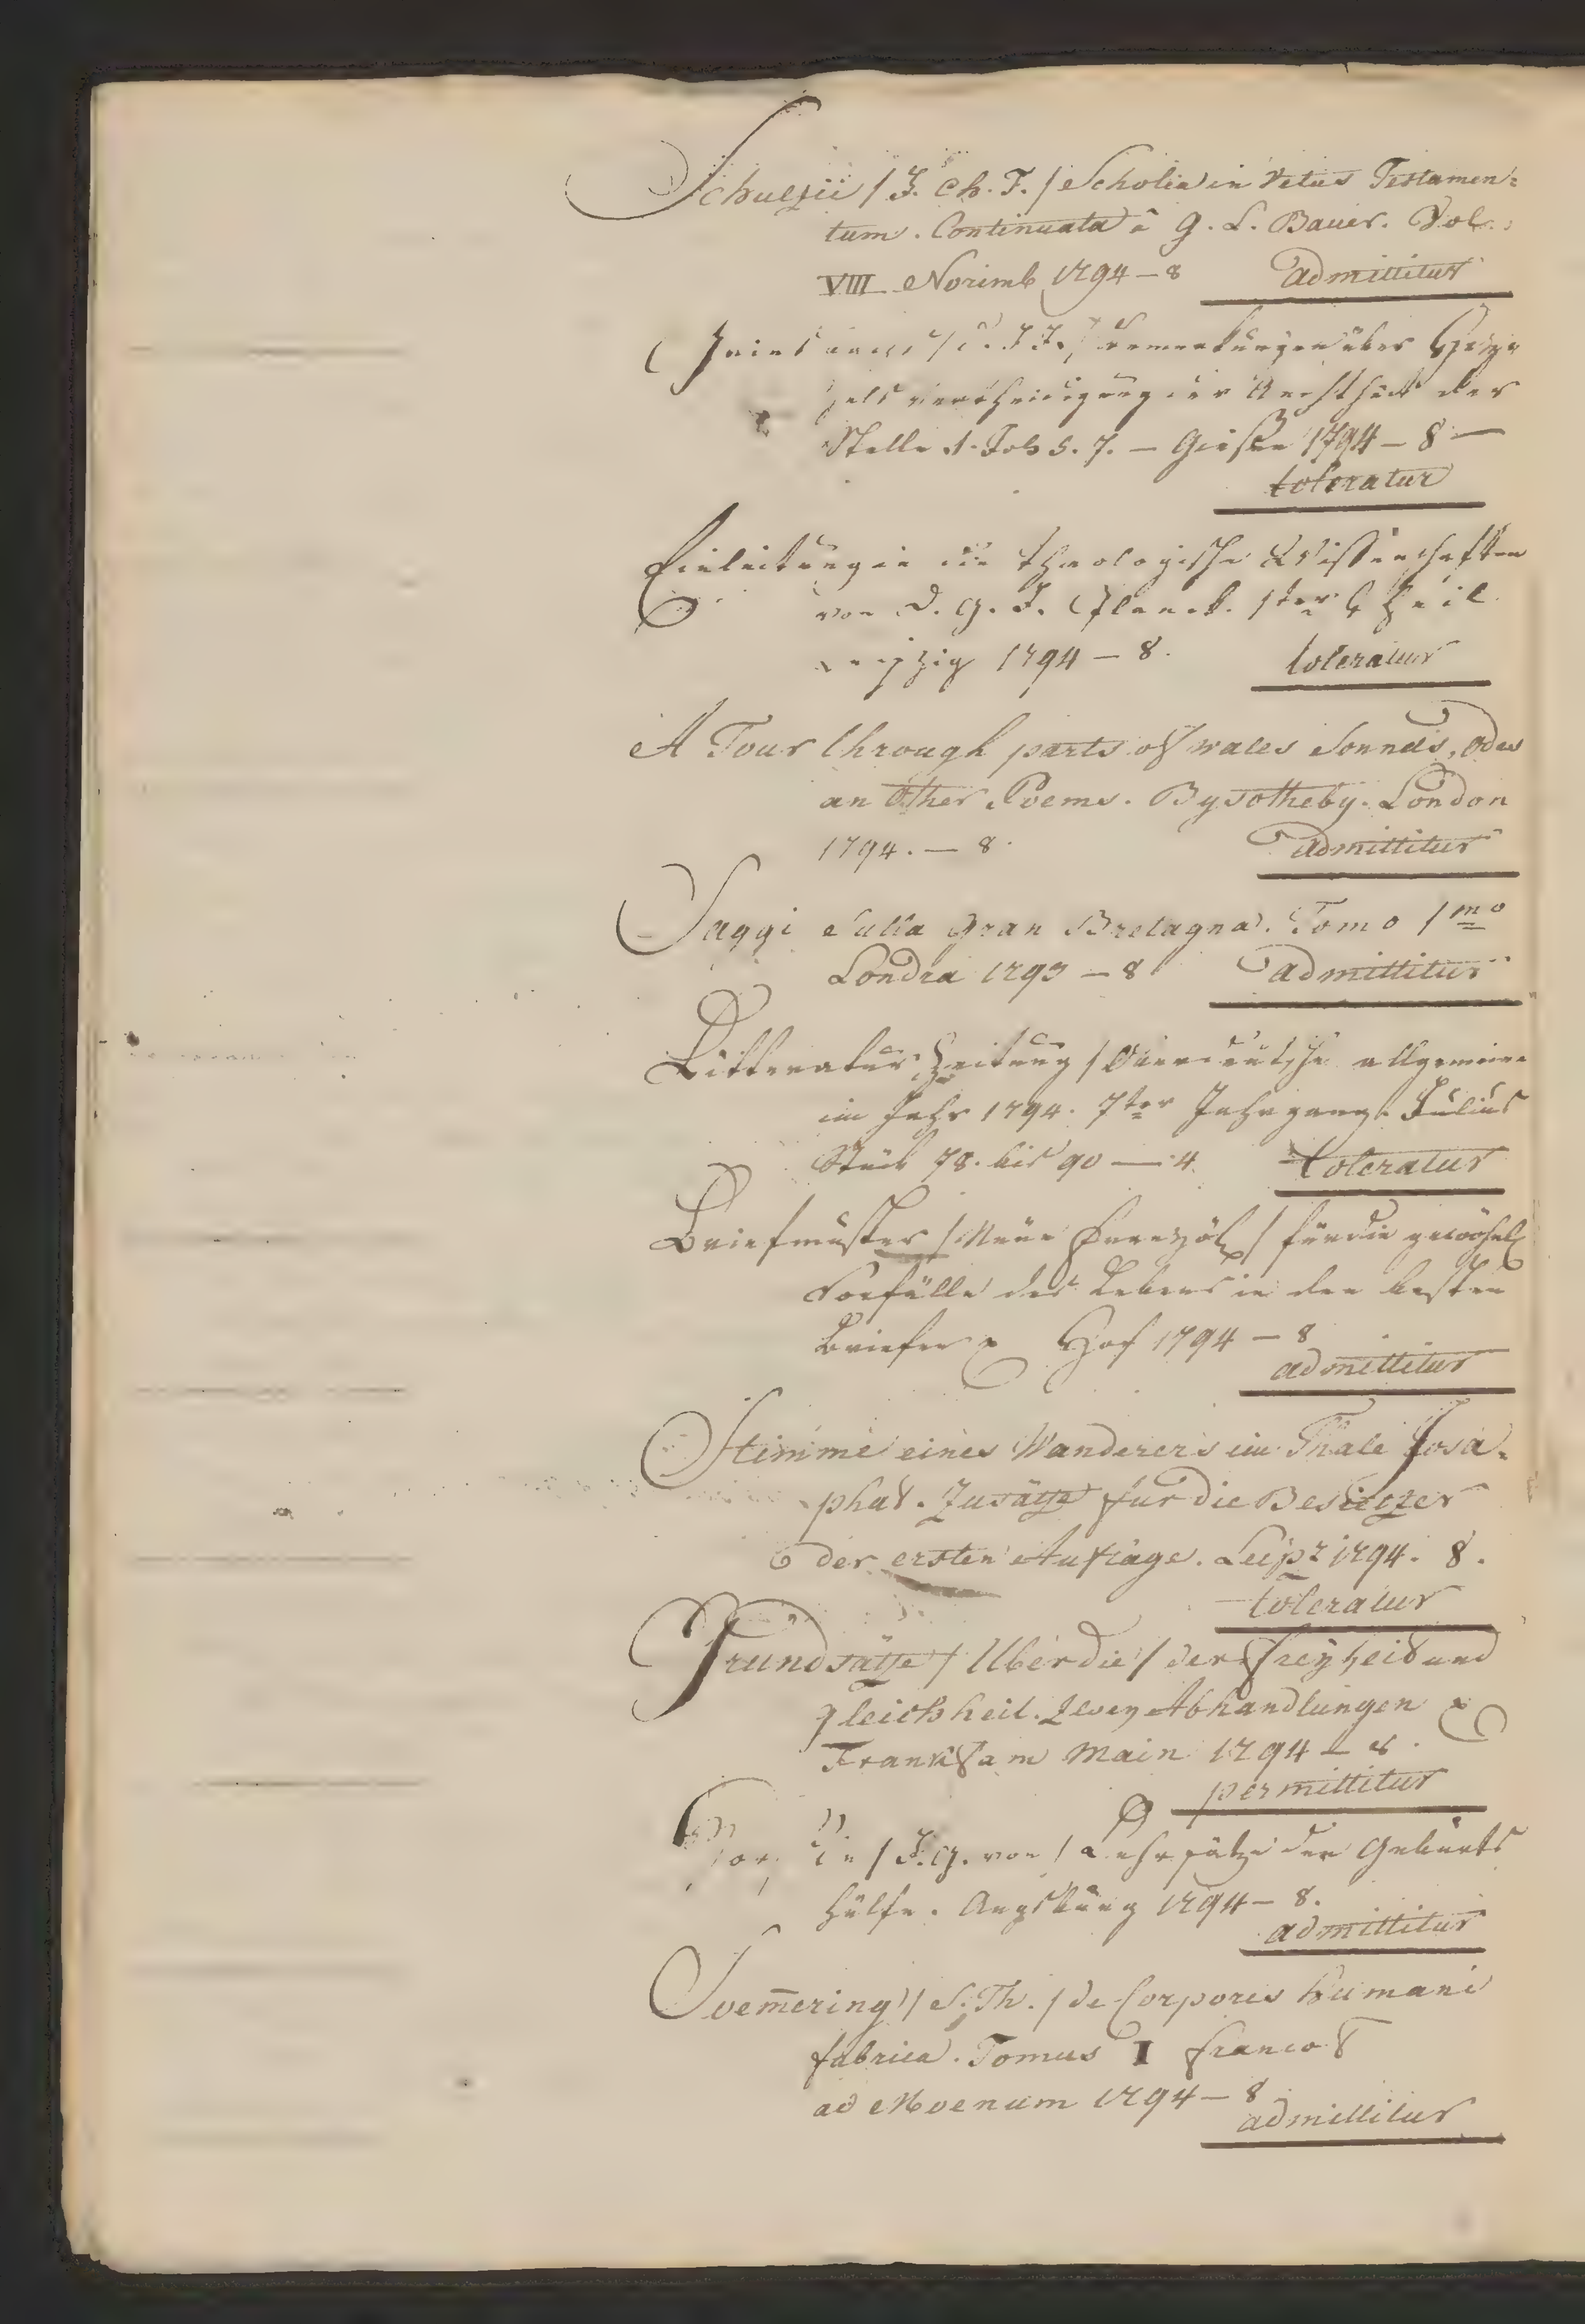 Schulzii / J. Ch. F. / Scholia in Vetus Testamen=
tum. Continuata â G. L. Bauer. Vol.
VIII Norimb 1794 – 8 admittitur
Bemerkungen über Heze
zels vertheidigung der Aechtheit der
Stelle 1. Joh 5. 7. – Gießen 1794 – 8 –
toleratur
Einleitung in die theologische Wissenschaften
von D. G. J. Planck. 1ter Theil
Leipzig 1794 – 8. toleratur
A Tour through parts of wales Sonnets, odes
an Other Poems. By Sotheby. London
1794. – 8. admittitur
Saggi Sulla Gran Bretagna. Tomo 1mo
Londra 1793 – 8 admittitur
Litteratur Zeitung / Oberdeutsche allgemeine
im Jahr 1794. 7ter Jahrgang. Julius
Stück 78. bis 90 — 4. toleratur
Briefmuster / Neue französ / für die gewöhnl
Vorfälle des Lebens in den besten
Briefen Hof 1794 – 8
admittitur
Stimme eines Wanderers im Thale Josa=
phat. Zusätze für die Besietzer
der ersten Auflage. Leipz 1794. 8.
toleratur
Grundsätze / Uber die / der Freyheit und
gleichheit. Zwey Abhandlungen
Frankf am Main 1794 – 8.
permittitur
/ J. G. von / Lehrsätze der Geburts
hülfe. Augsburg 1794 – 8.
admittitur
Soem̅ering / S. Th. / de Corporis humani
fabrica. Tomus I francof
ad Moenum 1794 – 8
admittitur